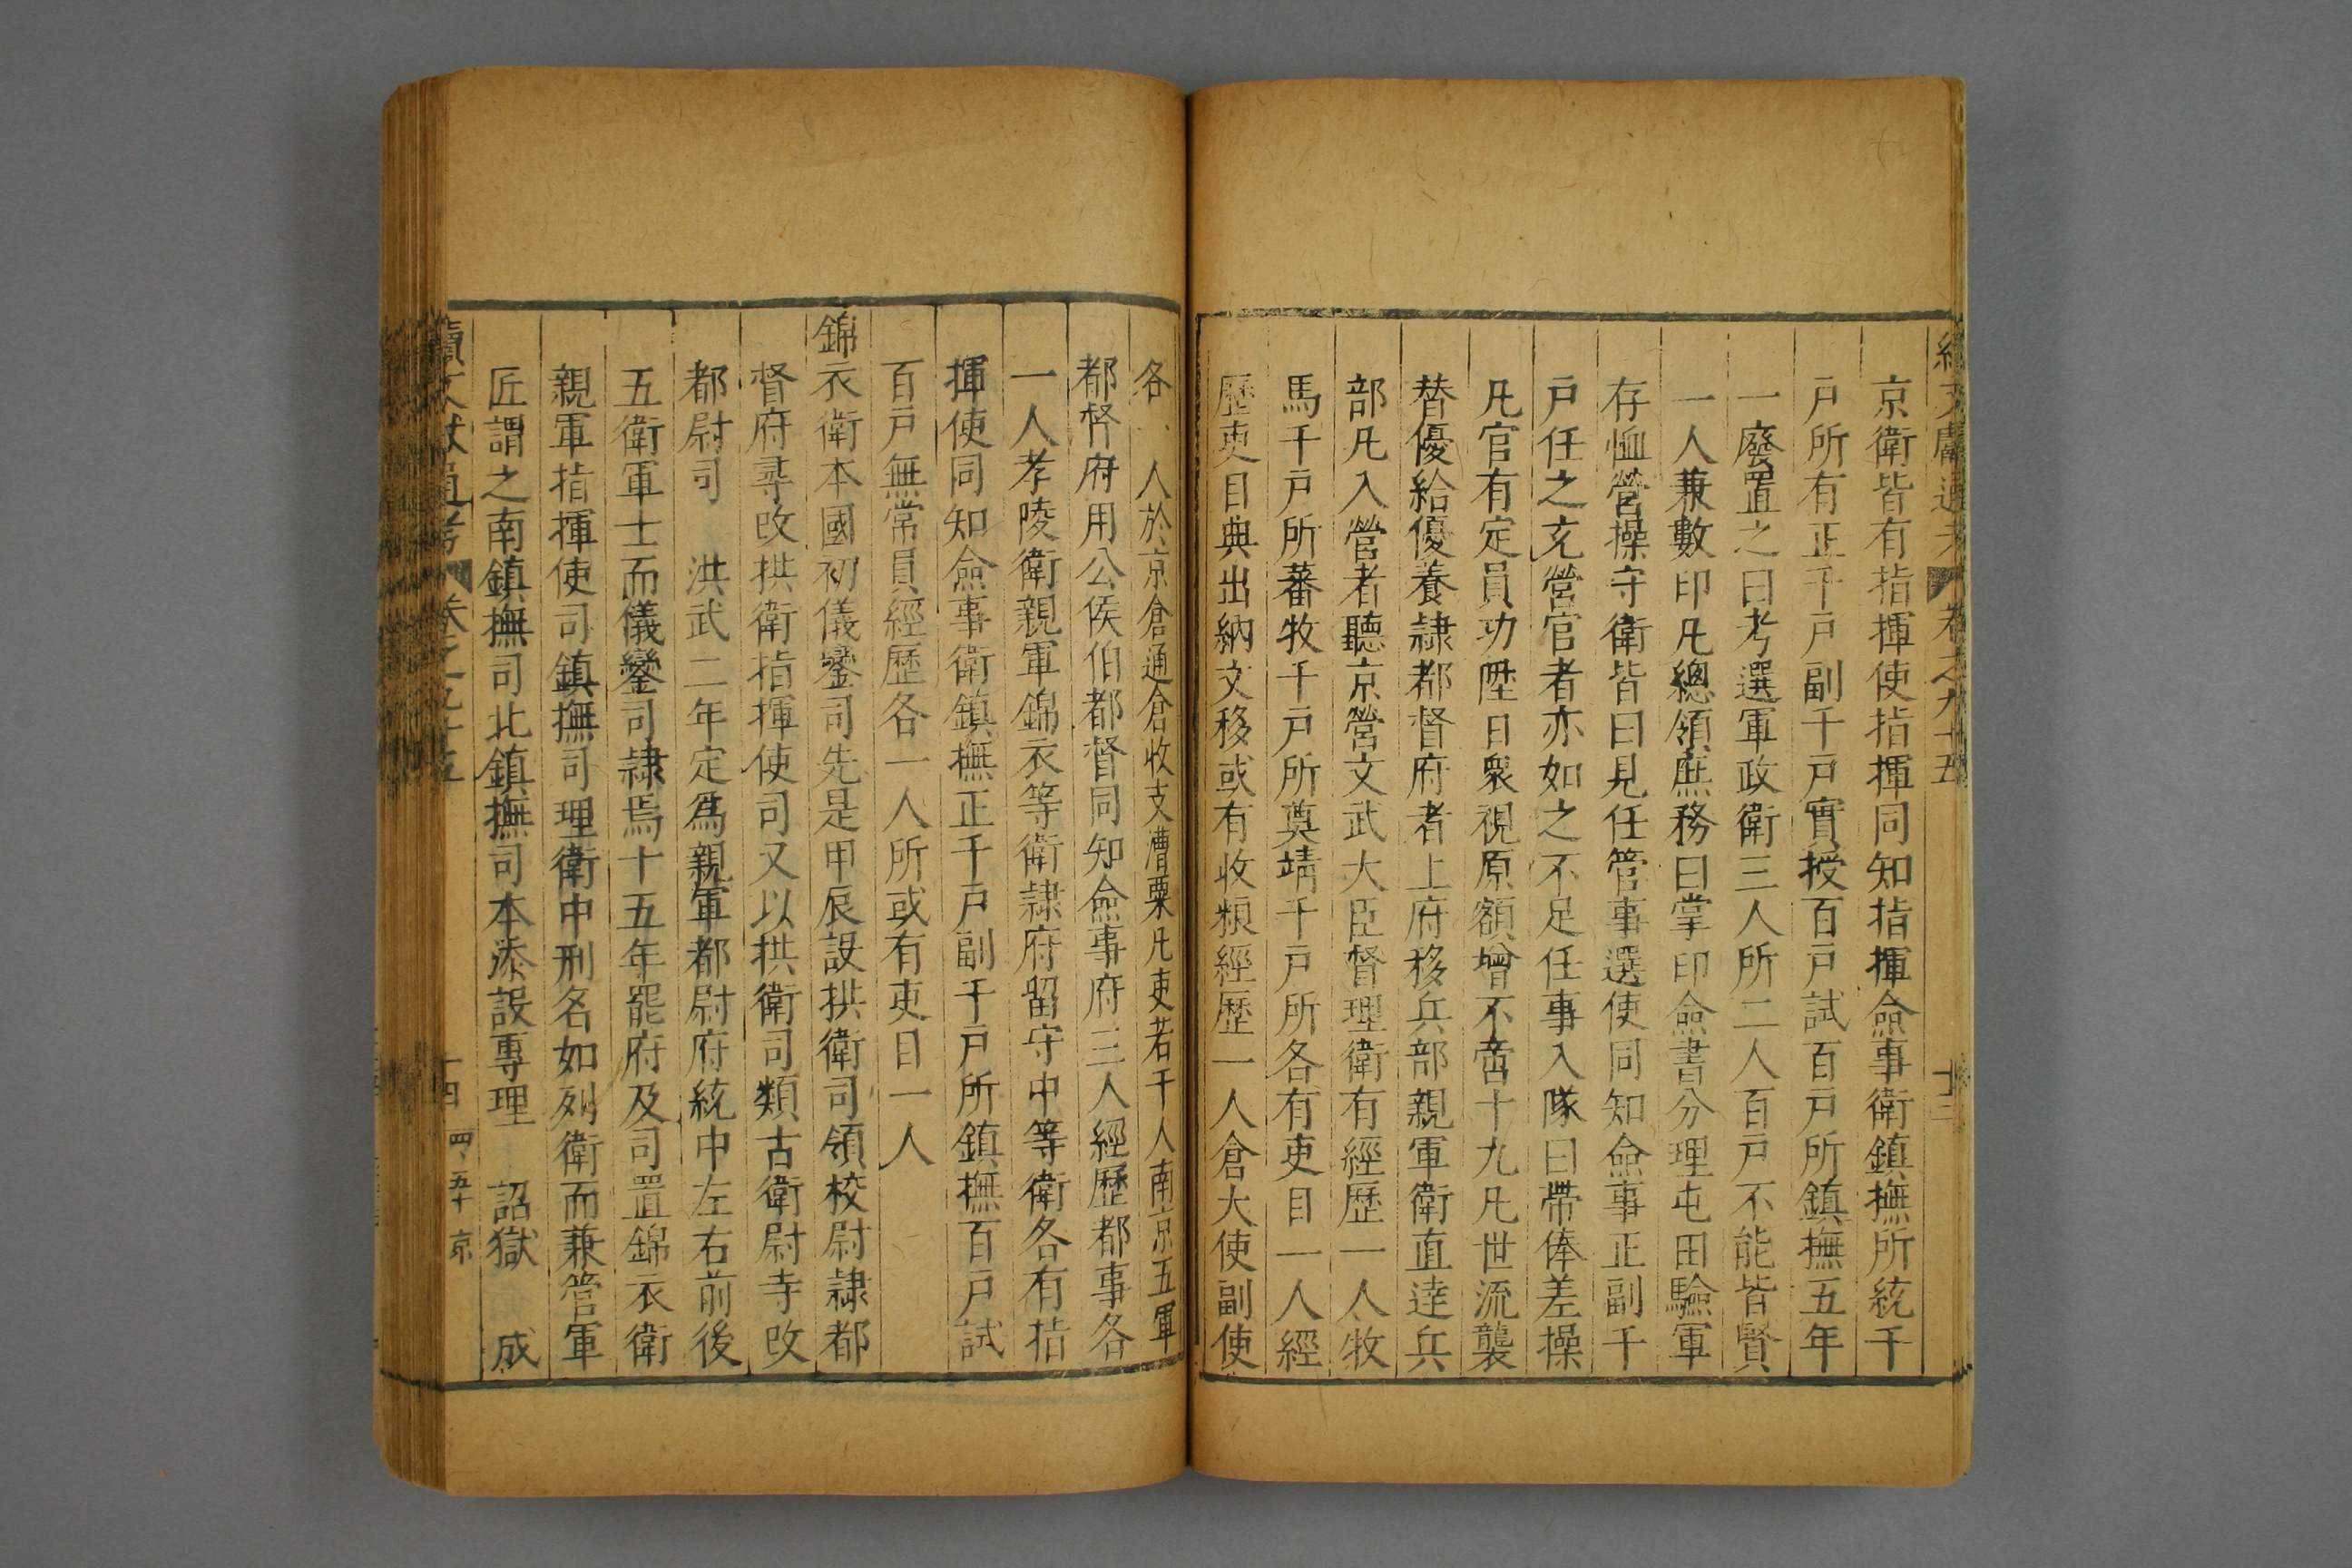 續文獻通考 卷之九十五 十三
京衛皆有指揮使指揮同知指揮僉事衛鎮撫所統千
戸所有正千戸副千戸實授百戸試百戸所鎮撫五年
一廢置之曰考選軍政衛三人所二人百戸不能皆賢
一人兼數印凡總領庶務曰掌印僉書分理屯田驗軍
存恤營操守衛皆曰見任管事選使同知僉事正副千
戸任之充營官者亦如之不足任事入隊曰帶俸差操
凡官有定員功陞日衆視原額增不啻十九凡世流襲
替優給優養隷都督府者上府移兵部親軍衛直達兵
部凡入營者聽京營文武大臣督理衛有經歷一人牧
馬千戸所蕃牧千戸所奠靖千戸所各有吏目一人經
歷吏目典出納文移或有收粮經歷一人倉大使副使
各 人於京倉通倉收支漕粟凡吏若干人南京五軍
都督府用公侯伯都督同知僉事府三人經歷都事各
一人孝陵衛親軍錦衣等衛隷府留守中等衛各有指
揮使同知僉事衛鎮撫正千戸副千戸所鎮撫百戸試
百戸無常員經歷各一人所或有吏目一人
錦衣衛本國初儀鑾司先是甲辰設拱衛司領校尉隷都
督府尋改拱衛指揮使司又以拱衛司類古衛尉寺改
都尉司 洪武二年定爲親軍都尉府統中左右前後
五衛軍士而儀鑾司隷焉十五年罷府及司置錦衣衛
親軍指揮使司鎮撫司理衛中刑名如列衛而兼管軍
匠謂之南鎮撫司北鎮撫司本添設專理 詔獄 成
續文獻通考 卷之九十五 十四 四五十 京